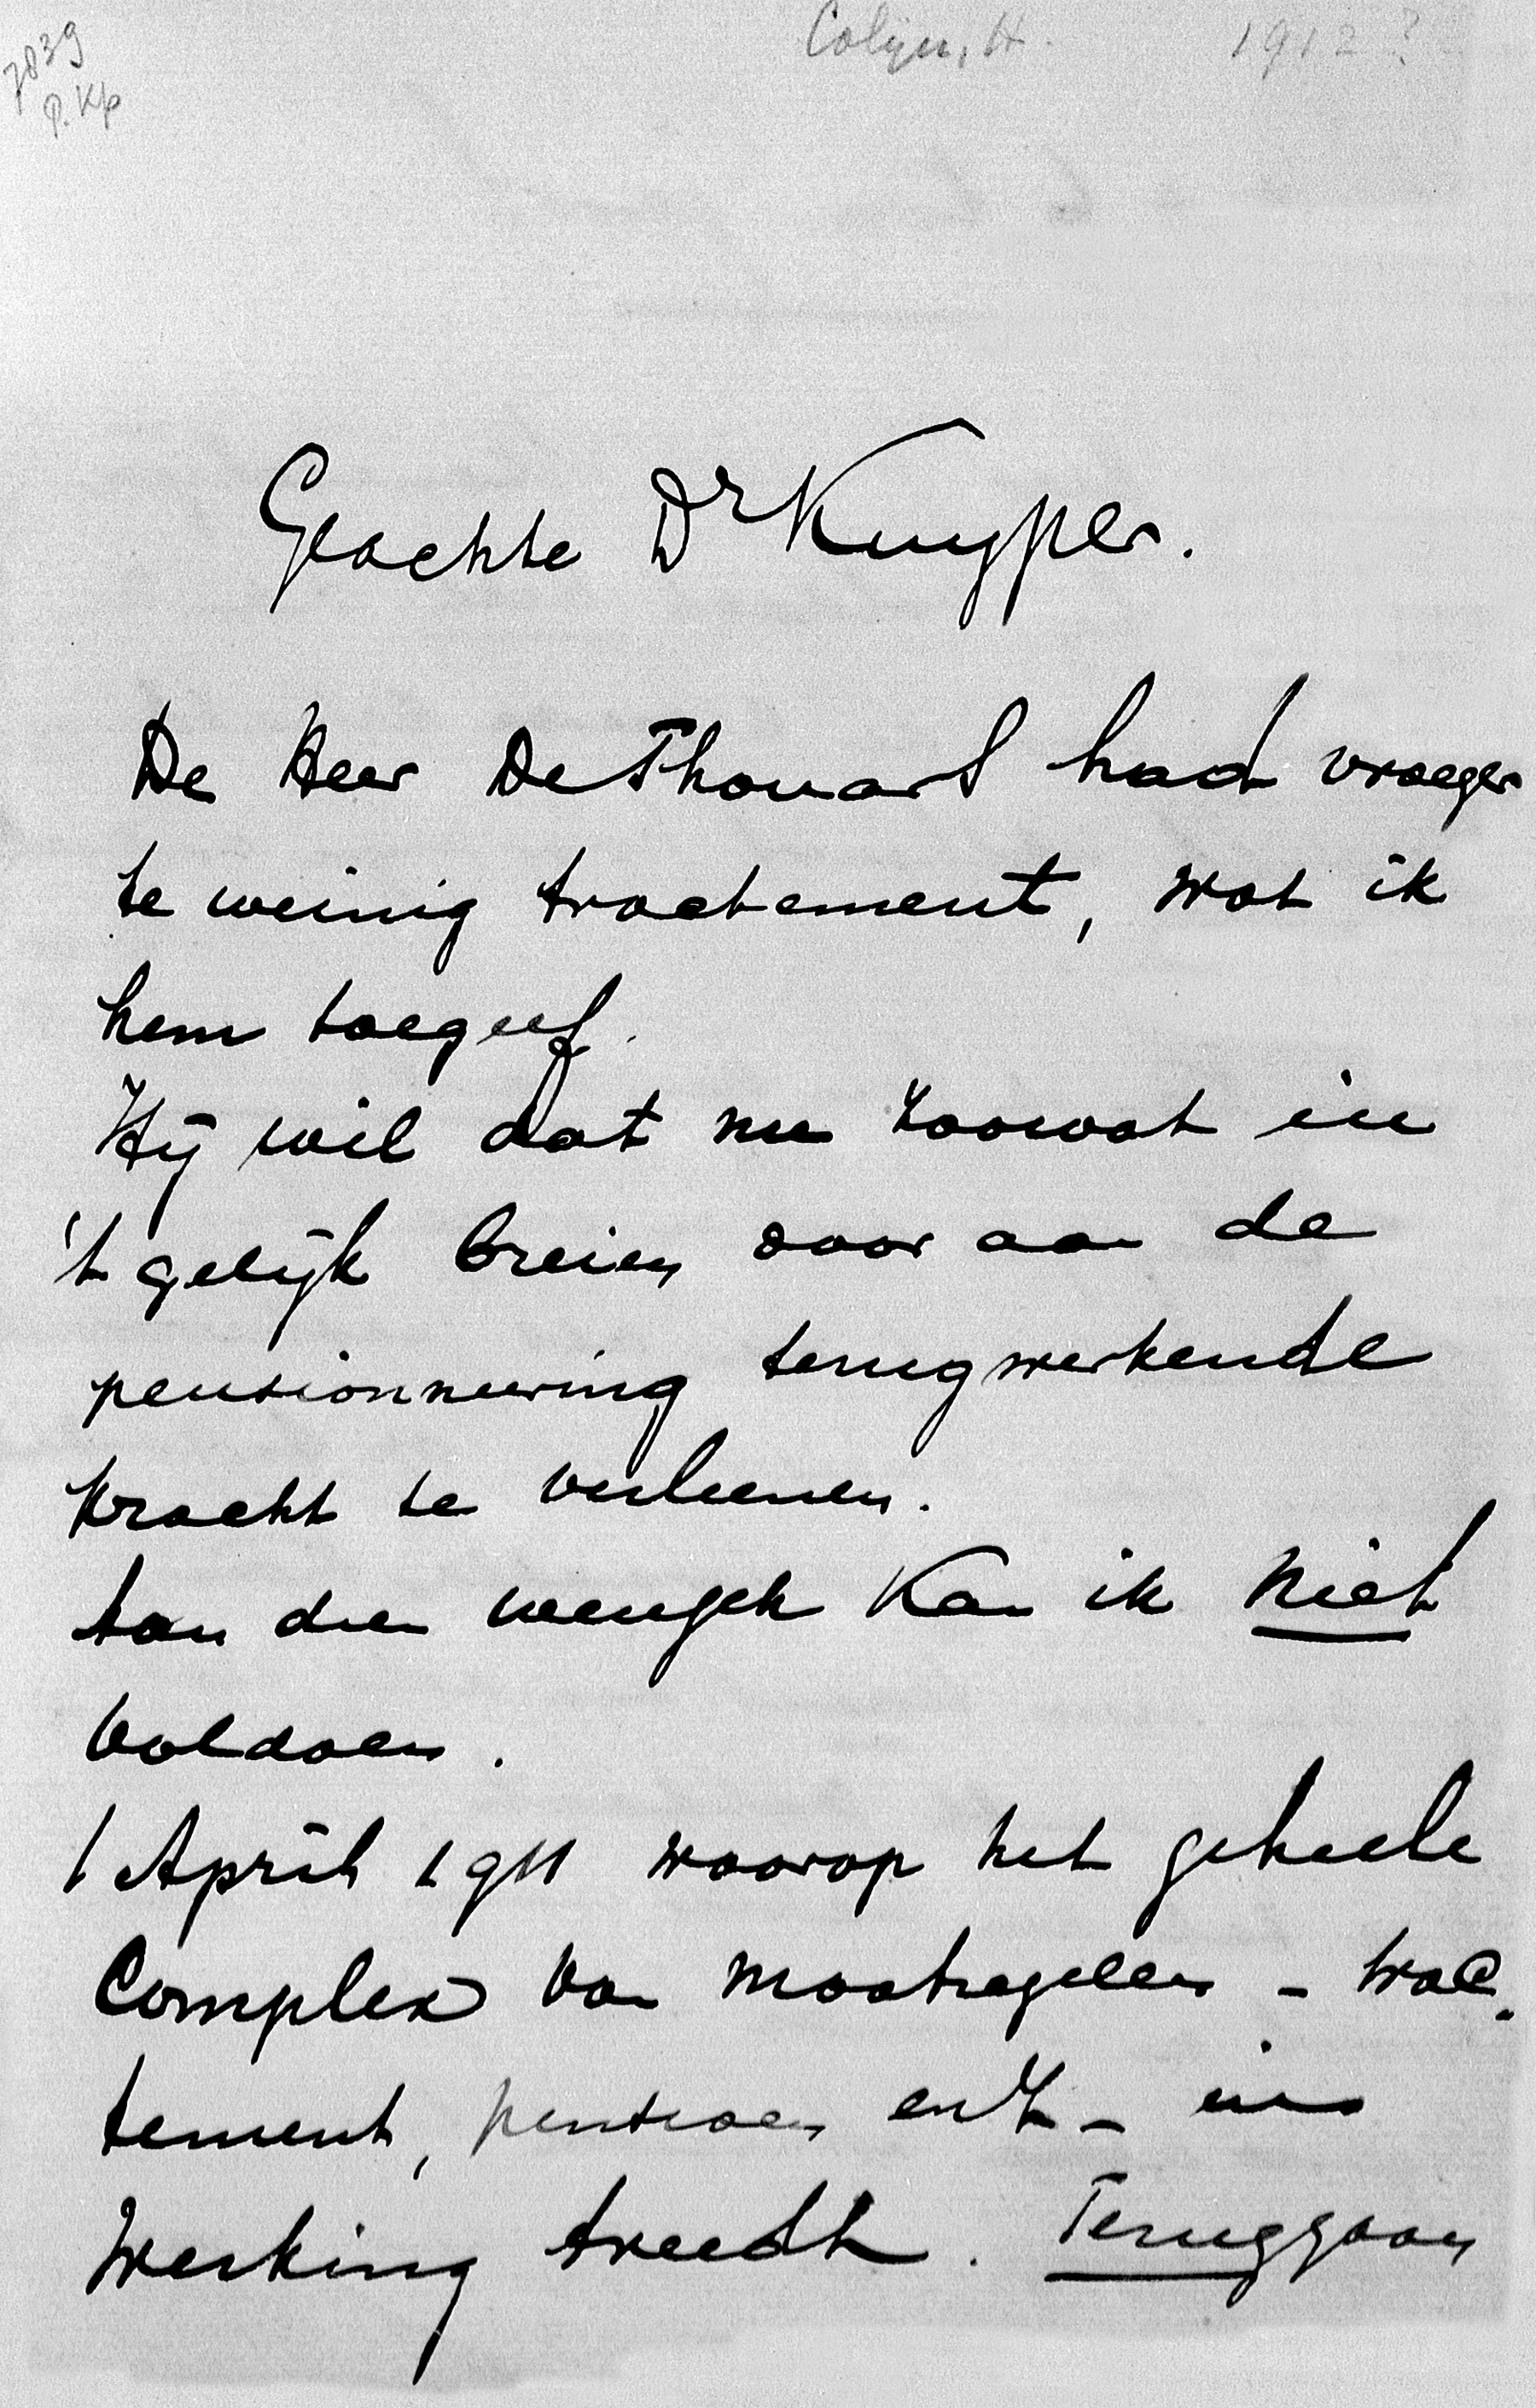 7839
P. Kp
Colijn, H. 1912?
Geachte Dr Kuyper.
De Heer De Thouars had vroeger
te weinig tractement, wat ik
hem toegeef.
Hij wil dat nu zoowat in
't gelijk breien door aan de
pensionneering terugwerkende
kracht te verleenen.
Aan dien wensch kan ik niet
voldoen.
1 April 1911 waarop het geheele
complex van maatregelen - trac-
tement, pensioen enz - in
werking treedt. Teruggaan